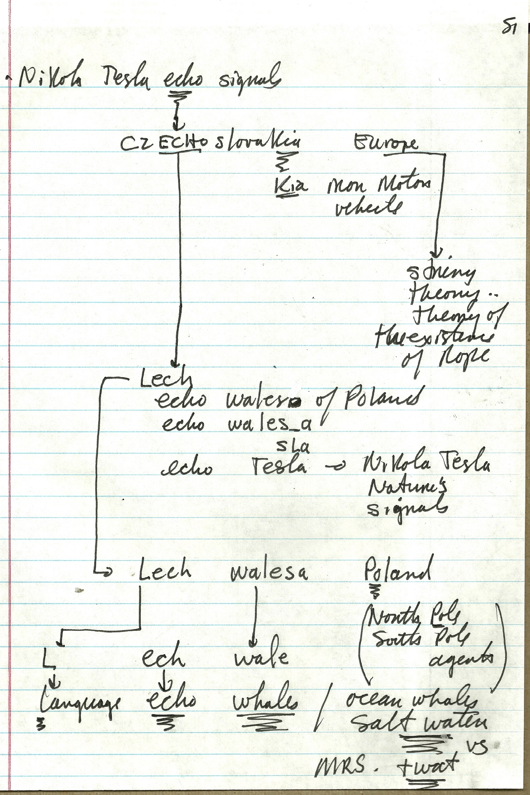 51
Nikola Tesla echo signals
CZECHOslovakia Europe
Kia non Motors
vehicls
string
theory..
theory of
the existence
of Rope
Lech
echo walesa of Poland
echo wales_a
sla
echo Tesla → Nikola Tesla
Nature's
signals
Lech walesa Poland
North Pole
South Pole
agents
L ech wale
Language echo whales / ocean whales
Salt water
vs
MRS. twat